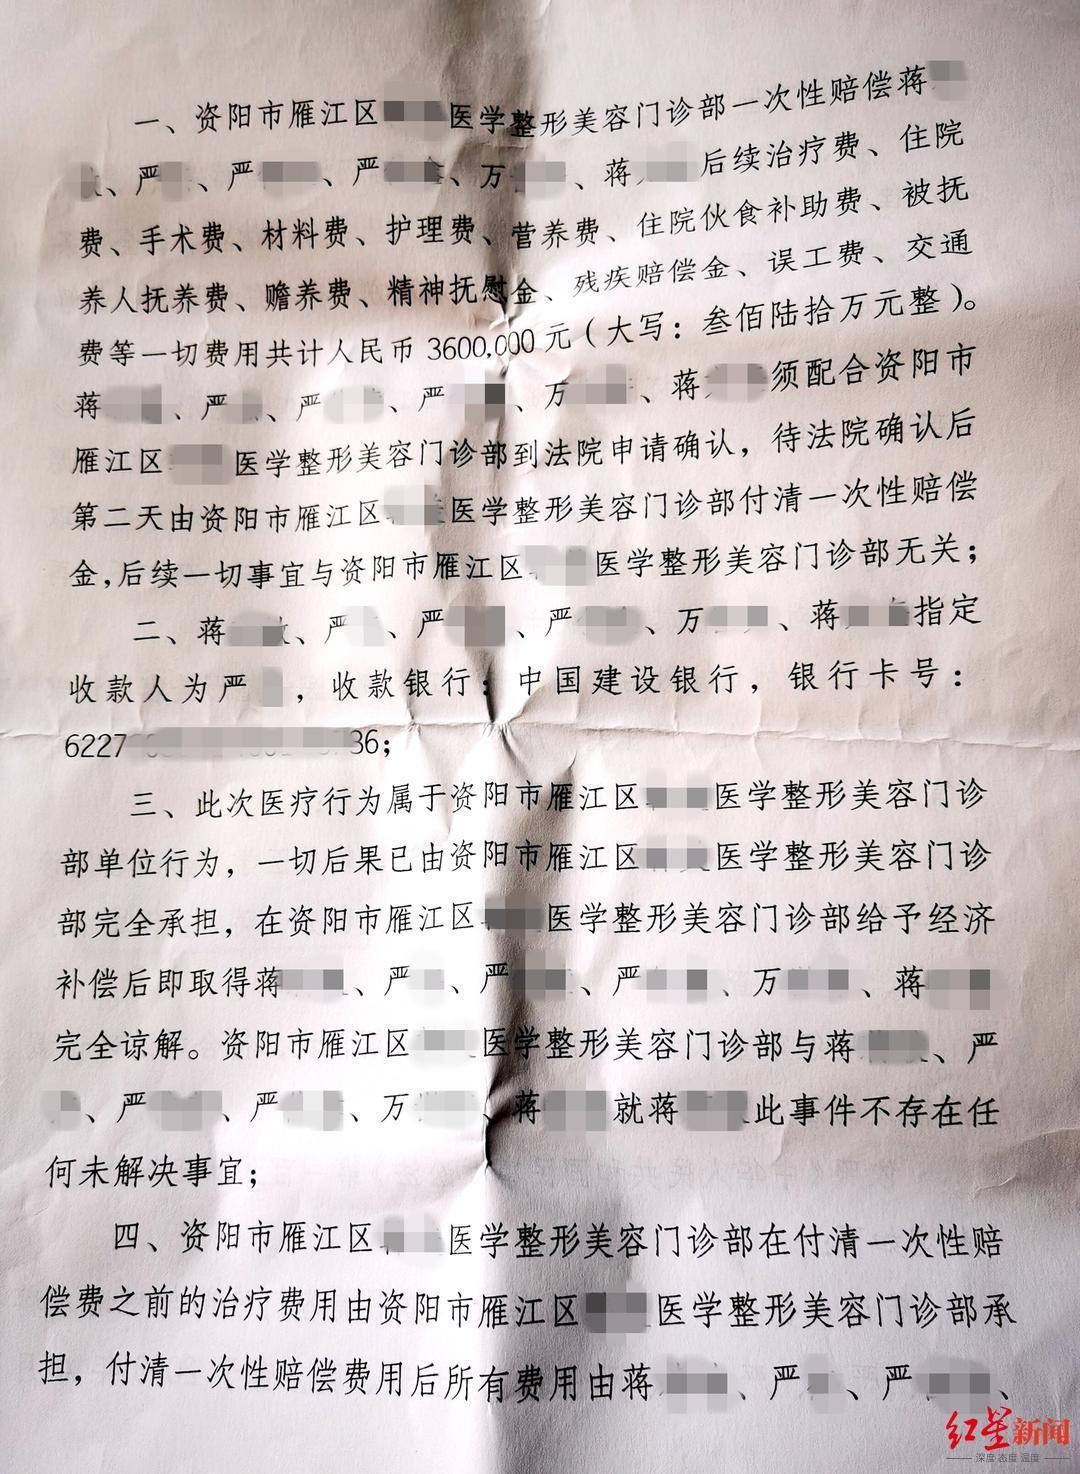 一、资阳市雁江区医学整形美容门诊部一次性赔偿蒋
、严、严、严、万、蒋后续治疗费、住院
费、手术费、材料费、护理费、营养费、住院伙食补助费、被抚
养人抚养费、赡养费、精神抚慰金、残疾赔偿金、误工费、交通
费等一切费用共计人民币3600,000元（大写：叁佰陆拾万元整）。
蒋、严、严、严、万、蒋须配合资阳市
雁江区医学整形美容门诊部到法院申请确认，待法院确认后
第二天由资阳市雁江区医学整形美容门诊部付清一次性赔偿
金,后续一切事宜与资阳市雁江区医学整形美容门诊部无关；
二、蒋、严、严、严、万、蒋指定
收款人为严，收款银行：中国建设银行，银行卡号：
6227 36;
三、此次医疗行为属于资阳市雁江区医学整形美容门诊
部单位行为，一切后果已由资阳市雁江区医学整形美容门诊
部完全承担，在资阳市雁江区医学整形美容门诊部给予经济
补偿后即取得蒋、严、严、严、万、蒋
完全谅解。资阳市雁江区医学整形美容门诊部与蒋、严
、严、严、万、蒋就蒋此事件不存在任
何未解决事宜；
四、资阳市雁江区医学整形美容门诊部在付清一次性赔
偿费之前的治疗费用由资阳市雁江区医学整形美容门诊部承
担，付清一次性赔偿费用后所有费用由蒋、严、严、
红星新闻
深度 态度 温度